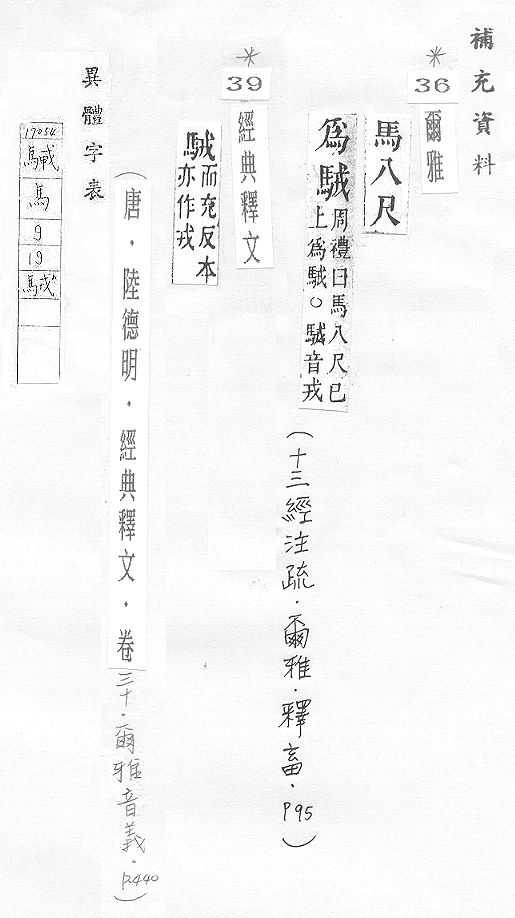 補充資料
*
36
爾雅
馬八尺
爲駥
周禮曰馬八尺已
上爲駥○駥音戎
(十三經注疏．爾雅．釋畜．P95)
*
39
經典釋文
駥
而充反本
亦作戎
(唐．陸德明．經典釋文．卷三十．爾雅音義．P2440)
異體字表
17054
馬
9
19
駥